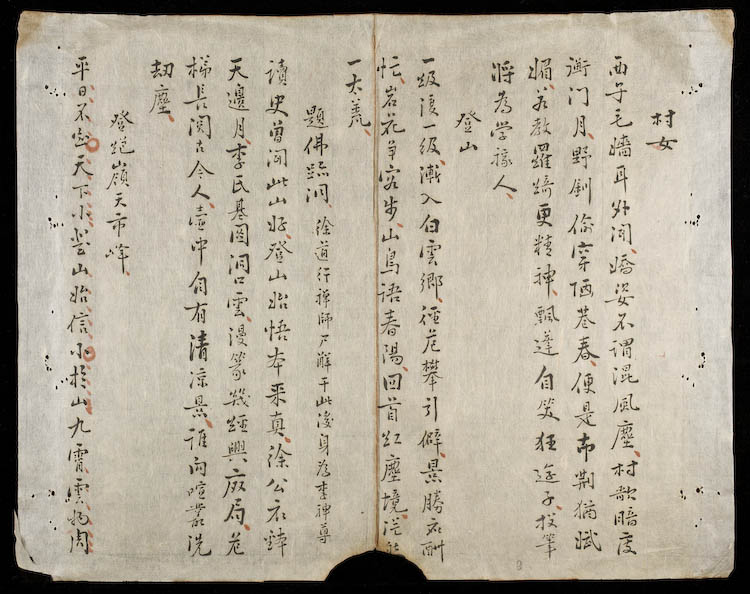 村女
西子毛嬙耳外聞嬌姿不謂混風塵村歌暗度
衡門月野釧偷穿陋巷春便是布荆猶賦
媚若教羅綺更精神飄蓬自笑狂遊子投筆
將為學稼人
登山
一級復一級漸入白雲鄉徑花攀引僻景勝石酬
忙岩花留客步山鳥語春陽回首紅塵境茫茫
一太荒
題佛跡洞 徐道行禪師尸解于此後身為李神尊
讀史曾聞此山好登山始悟本來真徐公石錊
天邊月李氏基圖洞口雲漫篆幾經興廢局苍
梯長閱古今人壺中自有清凉景誰向喧叢洗
劫塵
登絕嶺天市峰
平日不知天下小登山始信小於山九霄雲物周